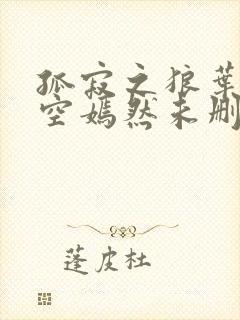 孤寂之狼葉
空嫣然未刪
蓬皮杜